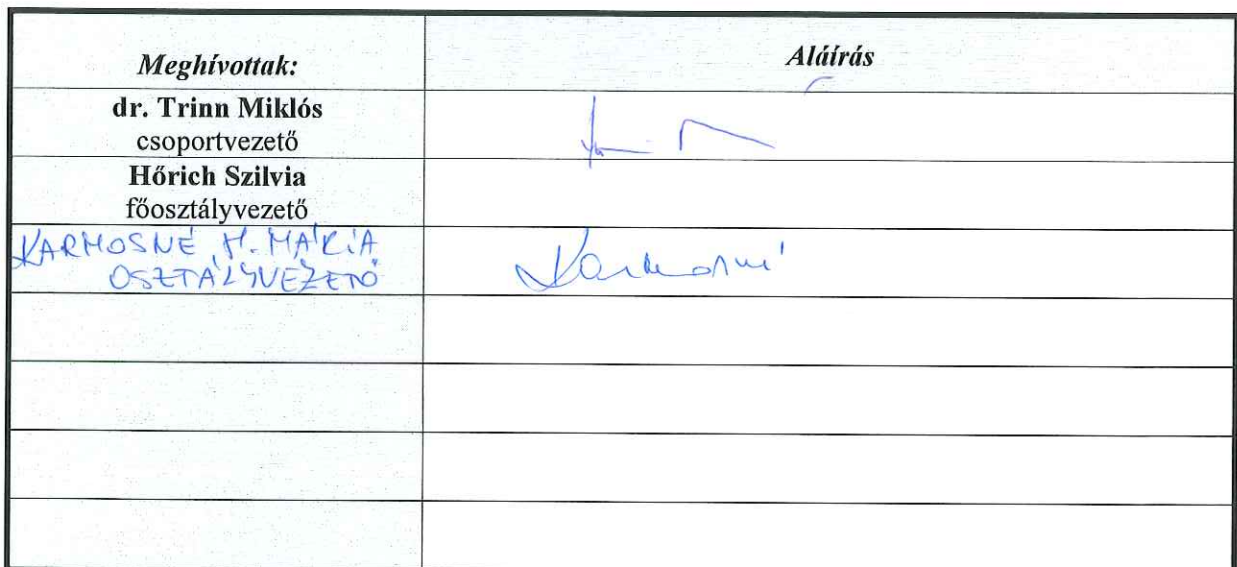 Meghívottak:
Aláírás
dr. Trinn Miklós
csoportvezető
Hőrich Szilvia
főosztályvezető
KARMOSNÉ H. MÁRIA
OSZTÁLYVEZETŐ
Karmosné